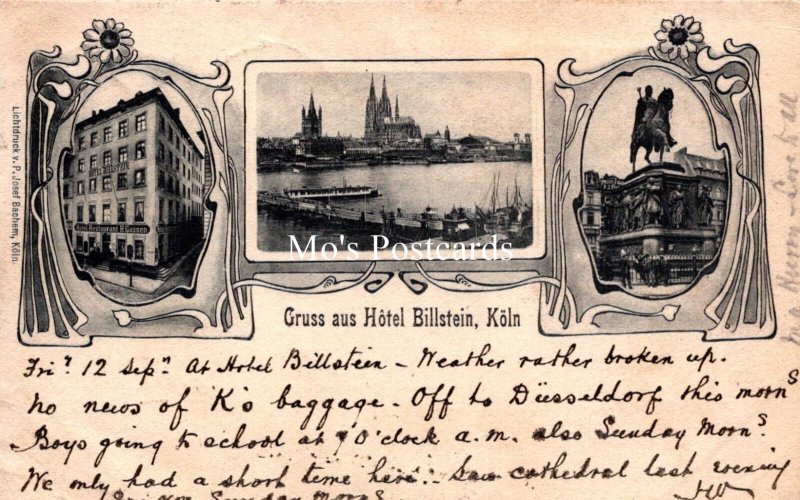 HOTEL BILLSTEIN
Hotel Restaurant H. Gassen
Lichtdruck v. P. Josef Bachem, Köln.
Mo's Postcards
Gruss aus Hôtel Billstein, Köln
Fri? 12 Sep? At Hotel Billstein – Weather rather broken up.
No news of K's baggage. Off to Düsseldorf this mornˢ
Boys going to school at 7 O'clock a.m. also Sunday Mornˢ.
We only had a short time here. Saw cathedral last evening
Sunday Mornˢ
Love to all